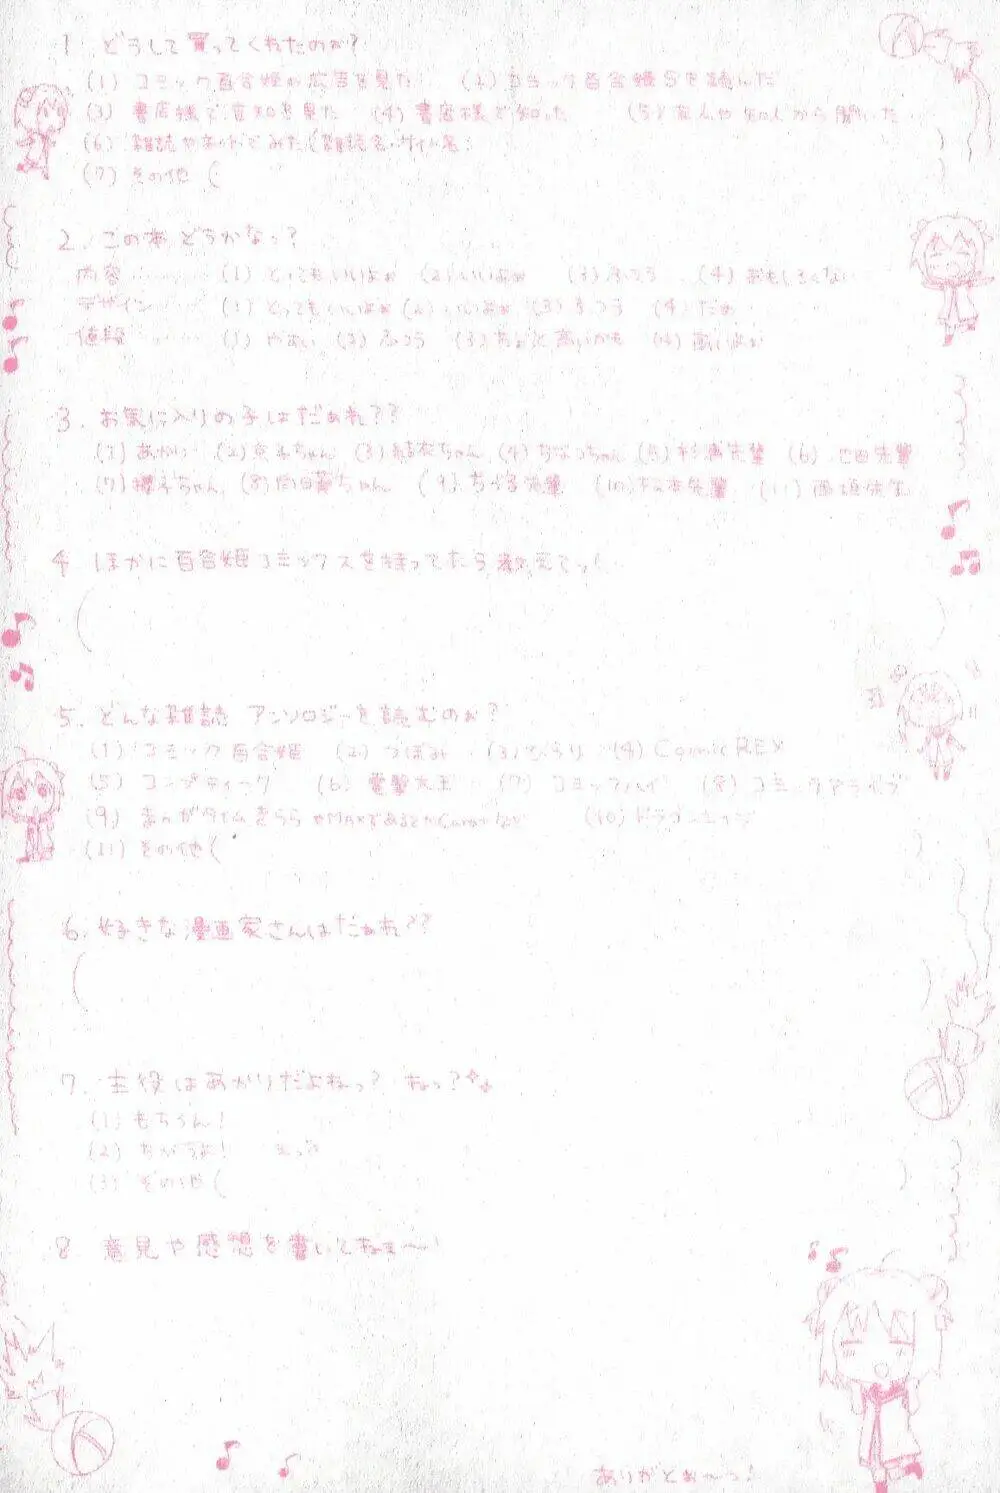 1. どうして買ってくれたのぉ?
(1) コミック百合姫の広告を見た (2) コミック百合姫Sを読んだ
(3) 書店様で告知を見た (4) 書店様で知った (5) 友人や知人から聞いた
(6) 雑誌やネットでみた(雑誌名・サイト名: )
(7) その他 ( )
2. この本どうかなっ?
内容 (1) とってもいいよぉ (2) いいよぉ (3) ふつう (4) おもしろくない
デザイン (1) とってもいいよぉ (2) いいよぉ (3) ふつう (4) だめ
値段 (1) やすい (2) ふつう (3) ちょっと高いかも (4) 高いよぉ
3. お気に入りの子はだぁれ??
(1) あかり (2) 京子ちゃん (3) 結衣ちゃん (4) ちなつちゃん (5) 杉浦先輩 (6) 池田先輩
(7) 櫻子ちゃん (8) 向日葵ちゃん (9) ちとせ先輩 (10) 松本先輩 (11) 西垣先生
4 ほかに百合姫コミックスを持ってたら教えてっ!
( )
5. どんな雑誌 アンソロジーを読むのぉ?
(1) コミック百合姫 (2) つぼみ (3) ひらり (4) Comic REX
(5) コンプティーク (6) 電撃大王 (7) コミックハイ (8) コミックアライブ
(9) まんがタイムきらら やMAXであるとかCaratなど (10) ドラゴンエイジ
(11) その他 ( )
6. 好きな漫画家さんはだぁれ??
( )
7. 主役はあかりだよねっ? ねっ?
(1) もちろん!
(2) ちがうよ!
(3) その他 ( )
8 意見や感想を書いてねぇ〜!
ありがとぉ〜っ!